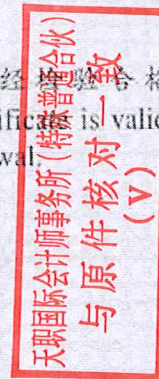 经检验合格
ificate is valid
wal.
天职国际会计师事务所(特殊普通合伙)
与原件核对一致
(V)